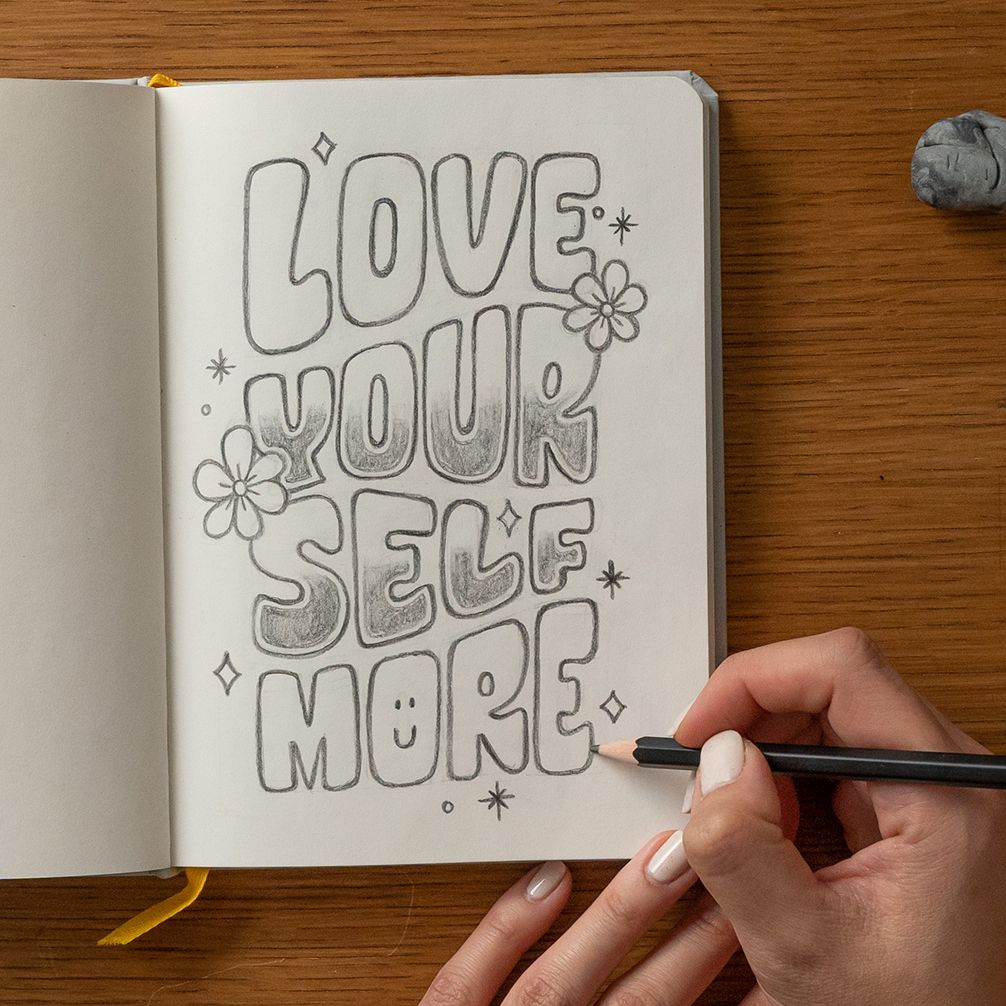 LOVE
YOUR
SELF
MORE